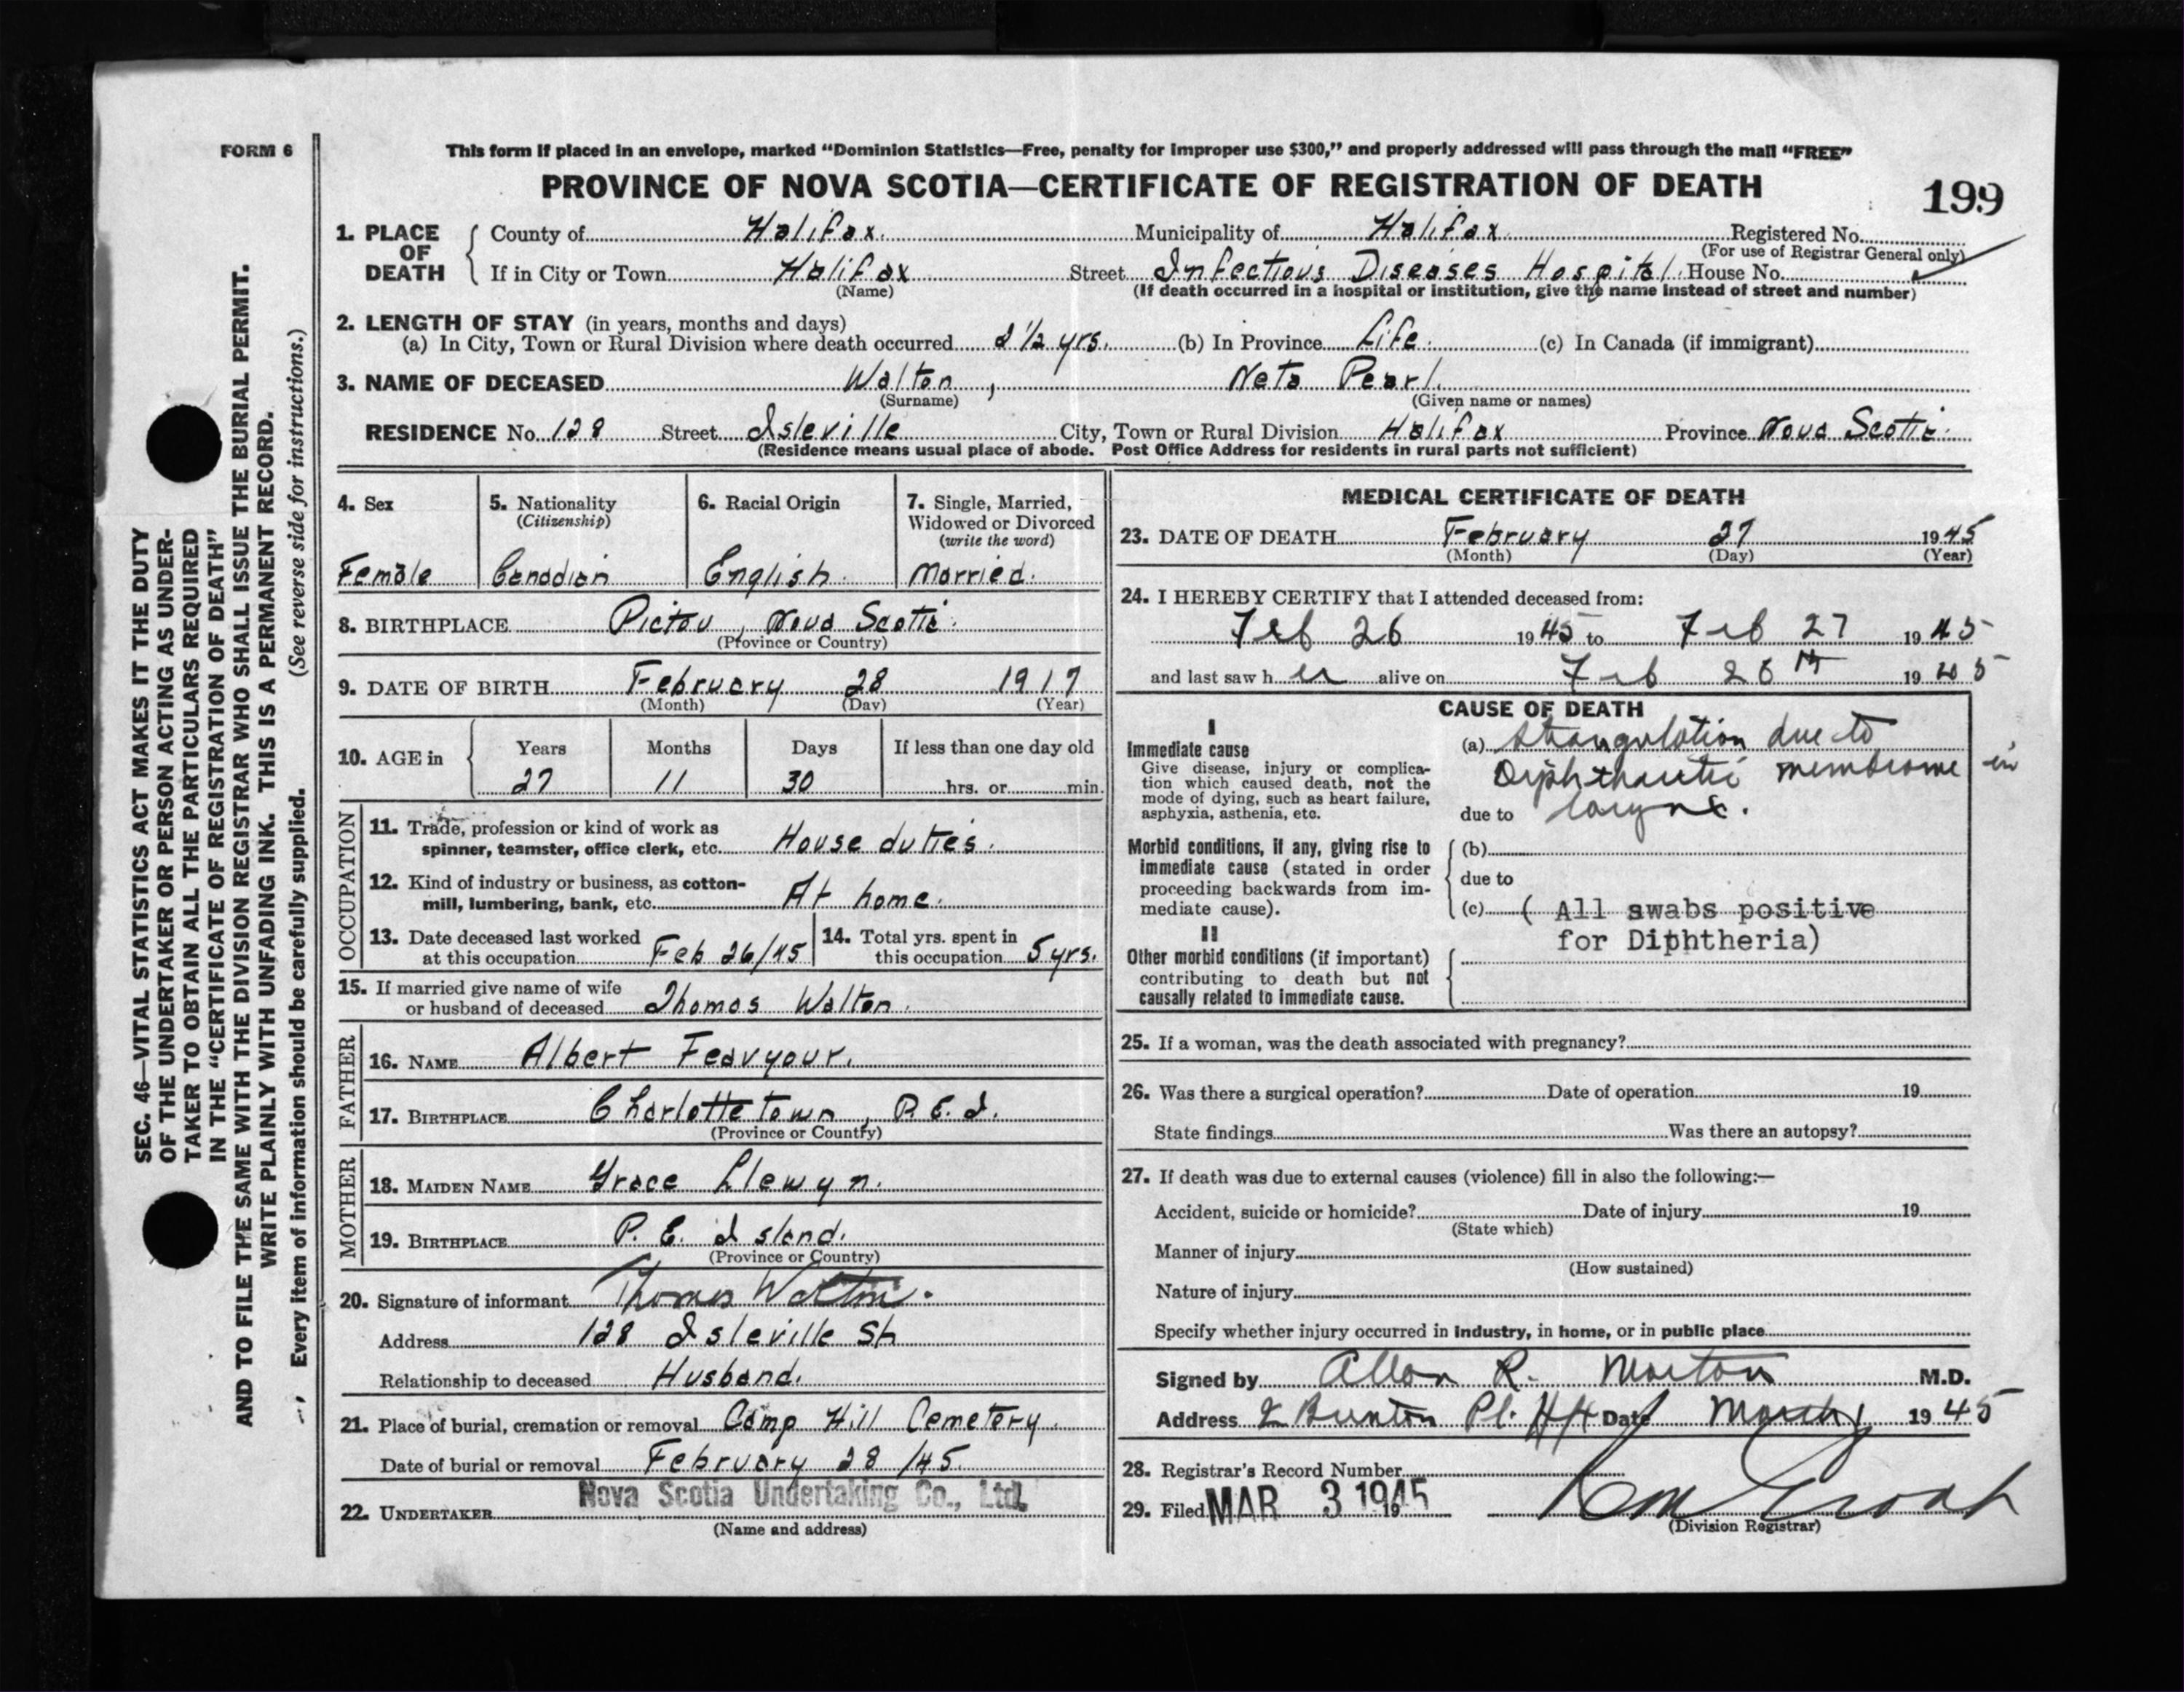 FORM 6
This form if placed in an envelope, marked "Dominion Statistics—Free, penalty for improper use $300," and properly addressed will pass through the mail "FREE"
PROVINCE OF NOVA SCOTIA—CERTIFICATE OF REGISTRATION OF DEATH
199
1. PLACE OF DEATH
County of Halifax. Municipality of Halifax Registered No.
(For use of Registrar General only)
If in City or Town Halifax Street Infectious Diseases Hospital House No.
(Name) (If death occurred in a hospital or institution, give the name instead of street and number)
2. LENGTH OF STAY (in years, months and days)
(a) In City, Town or Rural Division where death occurred 2 1/2 yrs. (b) In Province Life. (c) In Canada (if immigrant)
3. NAME OF DECEASED Walton, Neta Pearl.
(Surname) (Given name or names)
RESIDENCE No. 128 Street Isleville City, Town or Rural Division Halifax Province Nova Scotia.
(Residence means usual place of abode. Post Office Address for residents in rural parts not sufficient)
4. Sex
Female
5. Nationality
(Citizenship)
Canadian
6. Racial Origin
English.
7. Single, Married,
Widowed or Divorced
(write the word)
Married.
8. BIRTHPLACE Pictou, Nova Scotia.
(Province or Country)
9. DATE OF BIRTH February 28 1917
(Month) (Day) (Year)
10. AGE in
Years Months Days If less than one day old
27 11 30 hrs. or min.
OCCUPATION
11. Trade, profession or kind of work as
spinner, teamster, office clerk, etc. House duties.
12. Kind of industry or business, as cotton-
mill, lumbering, bank, etc. At home.
13. Date deceased last worked
at this occupation Feb 26/45
14. Total yrs. spent in
this occupation 5 yrs.
15. If married give name of wife
or husband of deceased Thomas Walton.
FATHER
16. NAME Albert Feavyour.
17. BIRTHPLACE Charlottetown, P.E.I.
(Province or Country)
MOTHER
18. MAIDEN NAME Grace Llewyn.
19. BIRTHPLACE P. E. Island.
(Province or Country)
20. Signature of informant Thomas Walton.
Address 128 Isleville St
Relationship to deceased Husband.
21. Place of burial, cremation or removal Camp Hill Cemetery.
Date of burial or removal February 28/45.
22. UNDERTAKER Nova Scotia Undertaking Co., Ltd.
(Name and address)
MEDICAL CERTIFICATE OF DEATH
23. DATE OF DEATH February 27 1945
(Month) (Day) (Year)
24. I HEREBY CERTIFY that I attended deceased from:
Feb 26 1945 to Feb 27 1945
and last saw her alive on Feb 26th 1945
CAUSE OF DEATH
I
Immediate cause
Give disease, injury or complica-
tion which caused death, not the
mode of dying, such as heart failure,
asphyxia, asthenia, etc.
(a) Strangulation due to
membrane in
due to larynx.
Morbid conditions, if any, giving rise to
immediate cause (stated in order
proceeding backwards from im-
mediate cause).
(b)
due to
(c) ( All swabs positive
for Diphtheria)
II
Other morbid conditions (if important)
contributing to death but not
causally related to immediate cause.
25. If a woman, was the death associated with pregnancy?
26. Was there a surgical operation? Date of operation 19
State findings Was there an autopsy?
27. If death was due to external causes (violence) fill in also the following:—
Accident, suicide or homicide? Date of injury 19
(State which)
Manner of injury
(How sustained)
Nature of injury
Specify whether injury occurred in industry, in home, or in public place
Signed by Allan R. Morton M.D.
Address Pl. Hfx Date March 1 1945
28. Registrar's Record Number
29. Filed MAR 3 1945 19
(Division Registrar)
SEC. 46—VITAL STATISTICS ACT MAKES IT THE DUTY
OF THE UNDERTAKER OR PERSON ACTING AS UNDER-
TAKER TO OBTAIN ALL THE PARTICULARS REQUIRED
IN THE "CERTIFICATE OF REGISTRATION OF DEATH"
AND TO FILE THE SAME WITH THE DIVISION REGISTRAR WHO SHALL ISSUE THE BURIAL PERMIT.
WRITE PLAINLY WITH UNFADING INK. THIS IS A PERMANENT RECORD.
Every item of information should be carefully supplied. (See reverse side for instructions.)